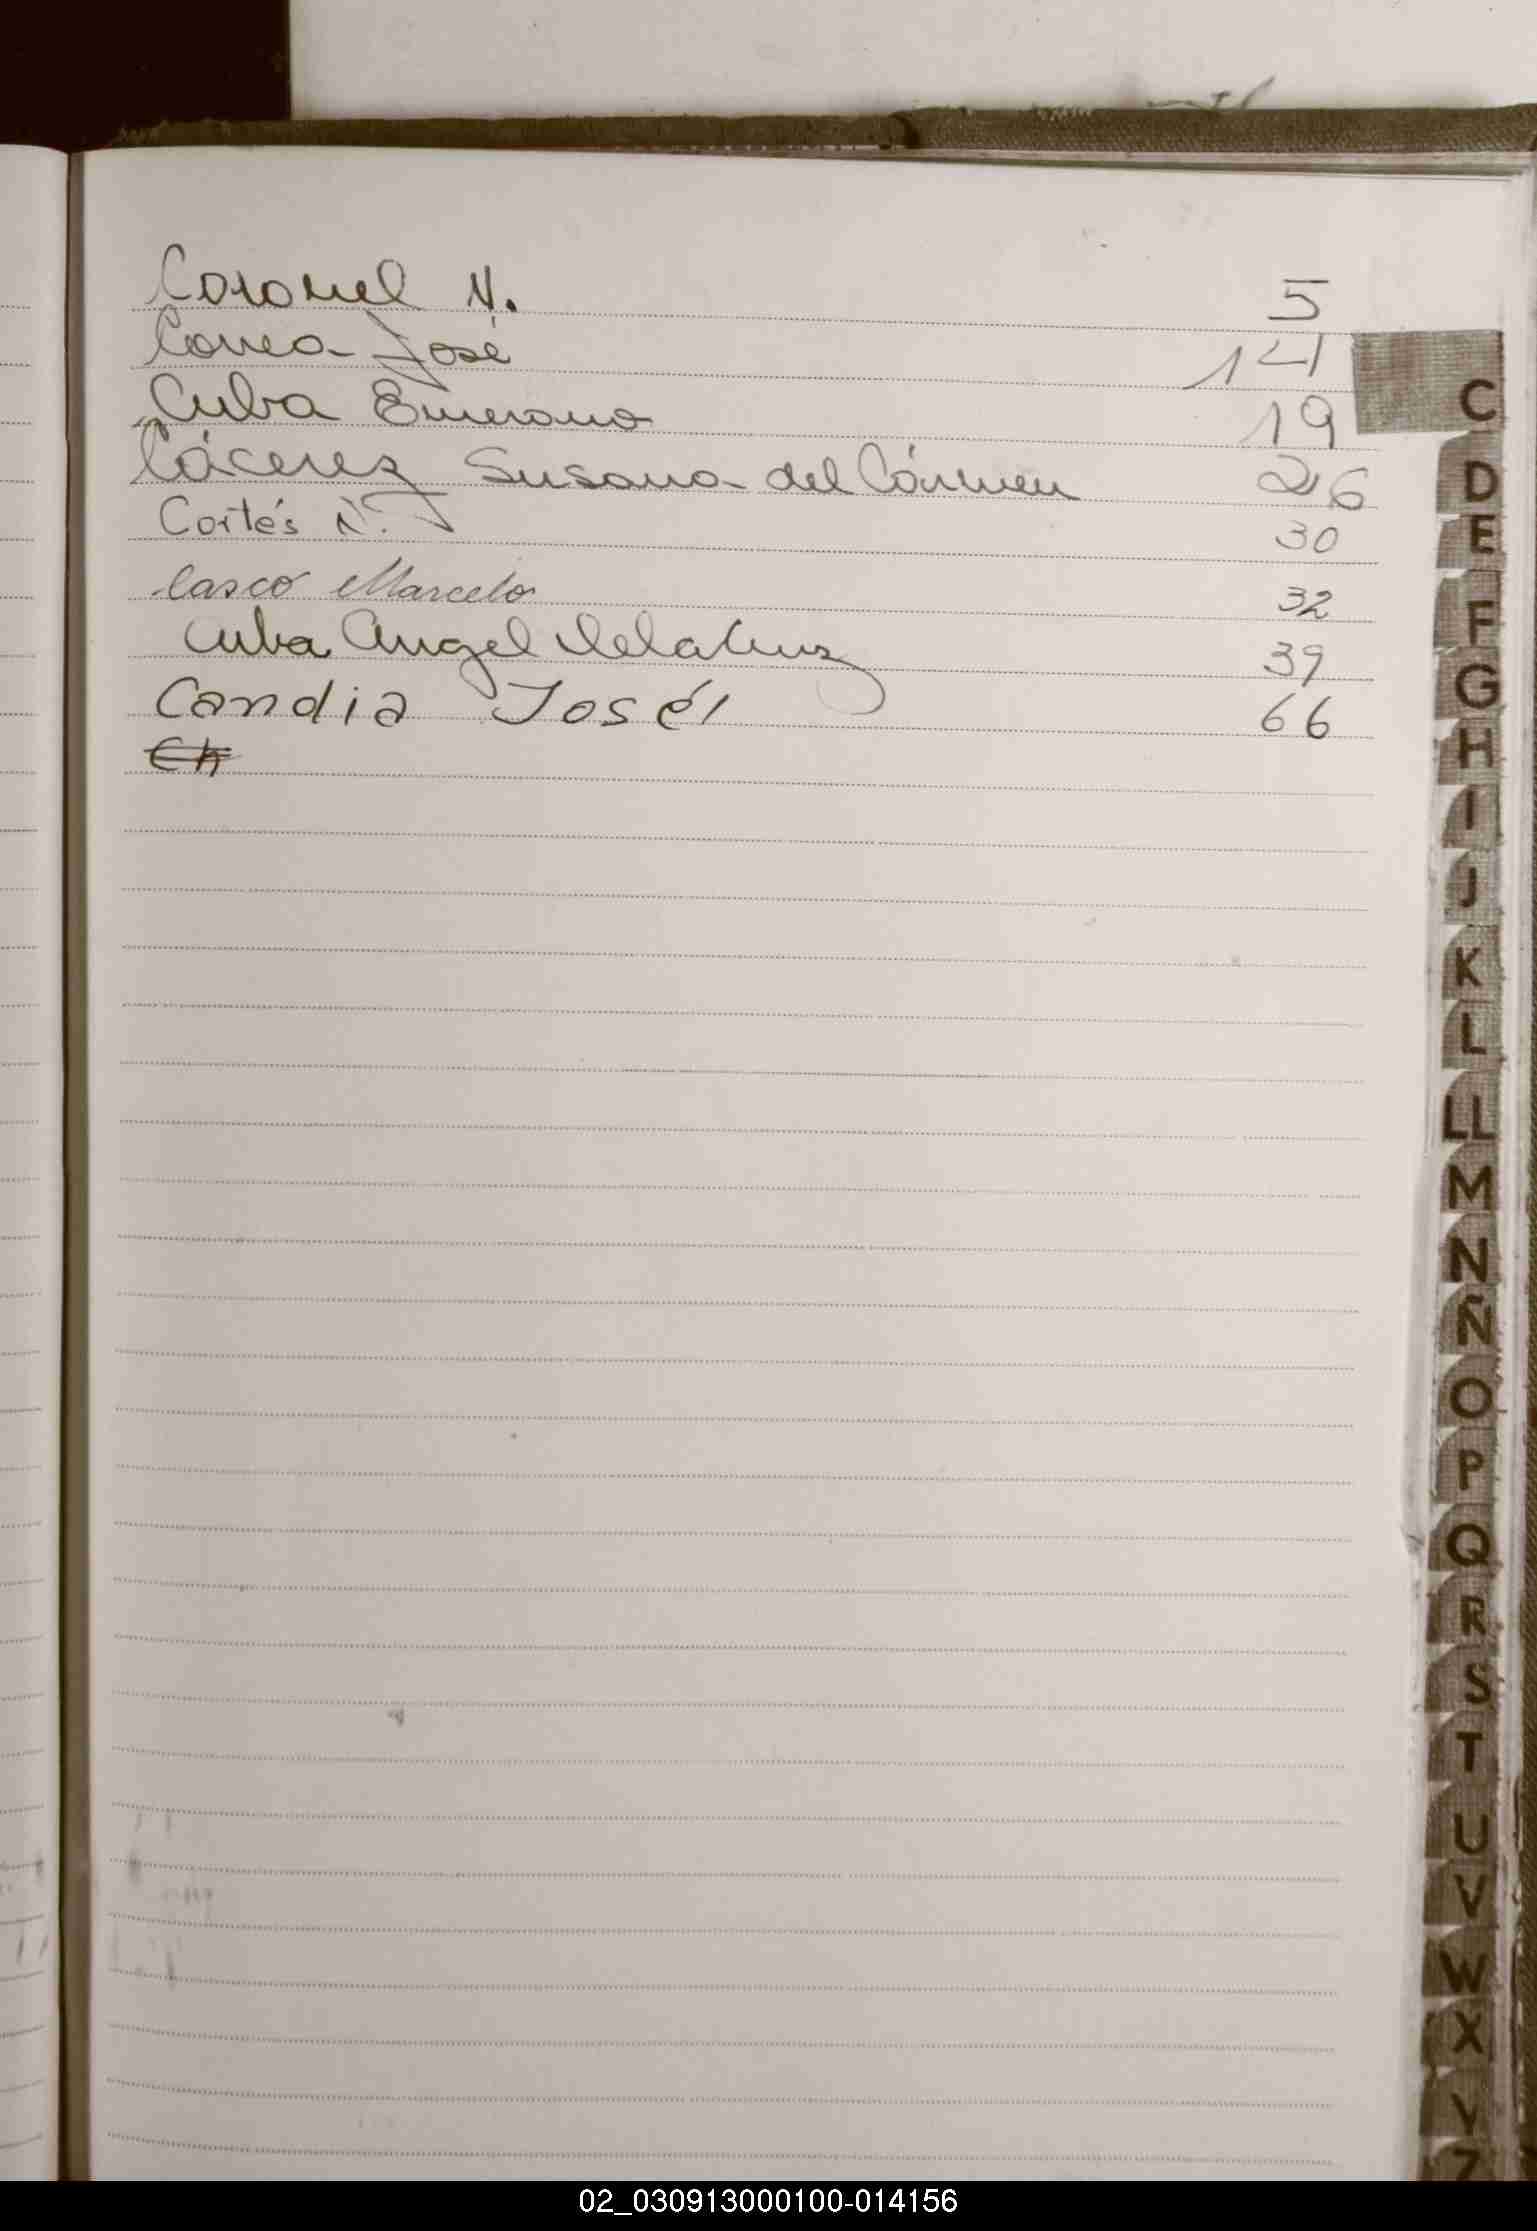 Coronel N. 5
Correa José 14
Cuba Emerana 19
Cácerez Susana del Cármen 26
Cortés N. 30
Casco Marcelo 32
Cuba Angel Delaluz 39
Candia José 66
Ch
C
D
E
F
G
H
I
J
K
L
LL
M
N
Ñ
O
P
Q
R
S
T
U
V
W
X
Y
Z
02_030913000100-014156